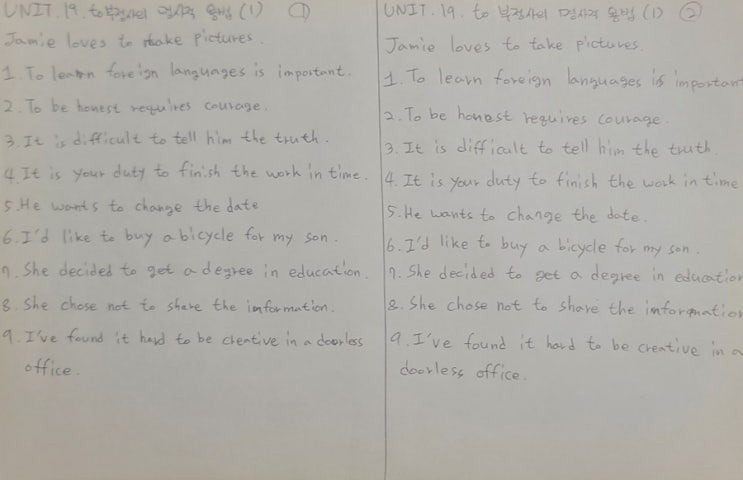 UNIT. 19. to 부정사의 명사적 용법 (1) ①
Jamie loves to take pictures.
1. To learn foreign languages is important.
2. To be honest requires courage.
3. It is difficult to tell him the truth.
4. It is your duty to finish the work in time.
5. He wants to change the date
6. I'd like to buy a bicycle for my son.
7. She decided to get a degree in education.
8. She chose not to share the information.
9. I've found it hard to be creative in a doorless
office.
UNIT. 19. to 부정사의 명사적 용법 (1) ②
Jamie loves to take pictures.
1. To learn foreign languages is important
2. To be honest requires courage.
3. It is difficult to tell him the truth.
4. It is your duty to finish the work in time
5. He wants to change the date.
6. I'd like to buy a bicycle for my son.
7. She decided to get a degree in education
8. She chose not to share the information
9. I've found it hard to be creative in a
doorless office.